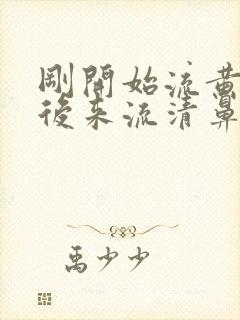 剛開始流黃
後來流清鼻
禹少少